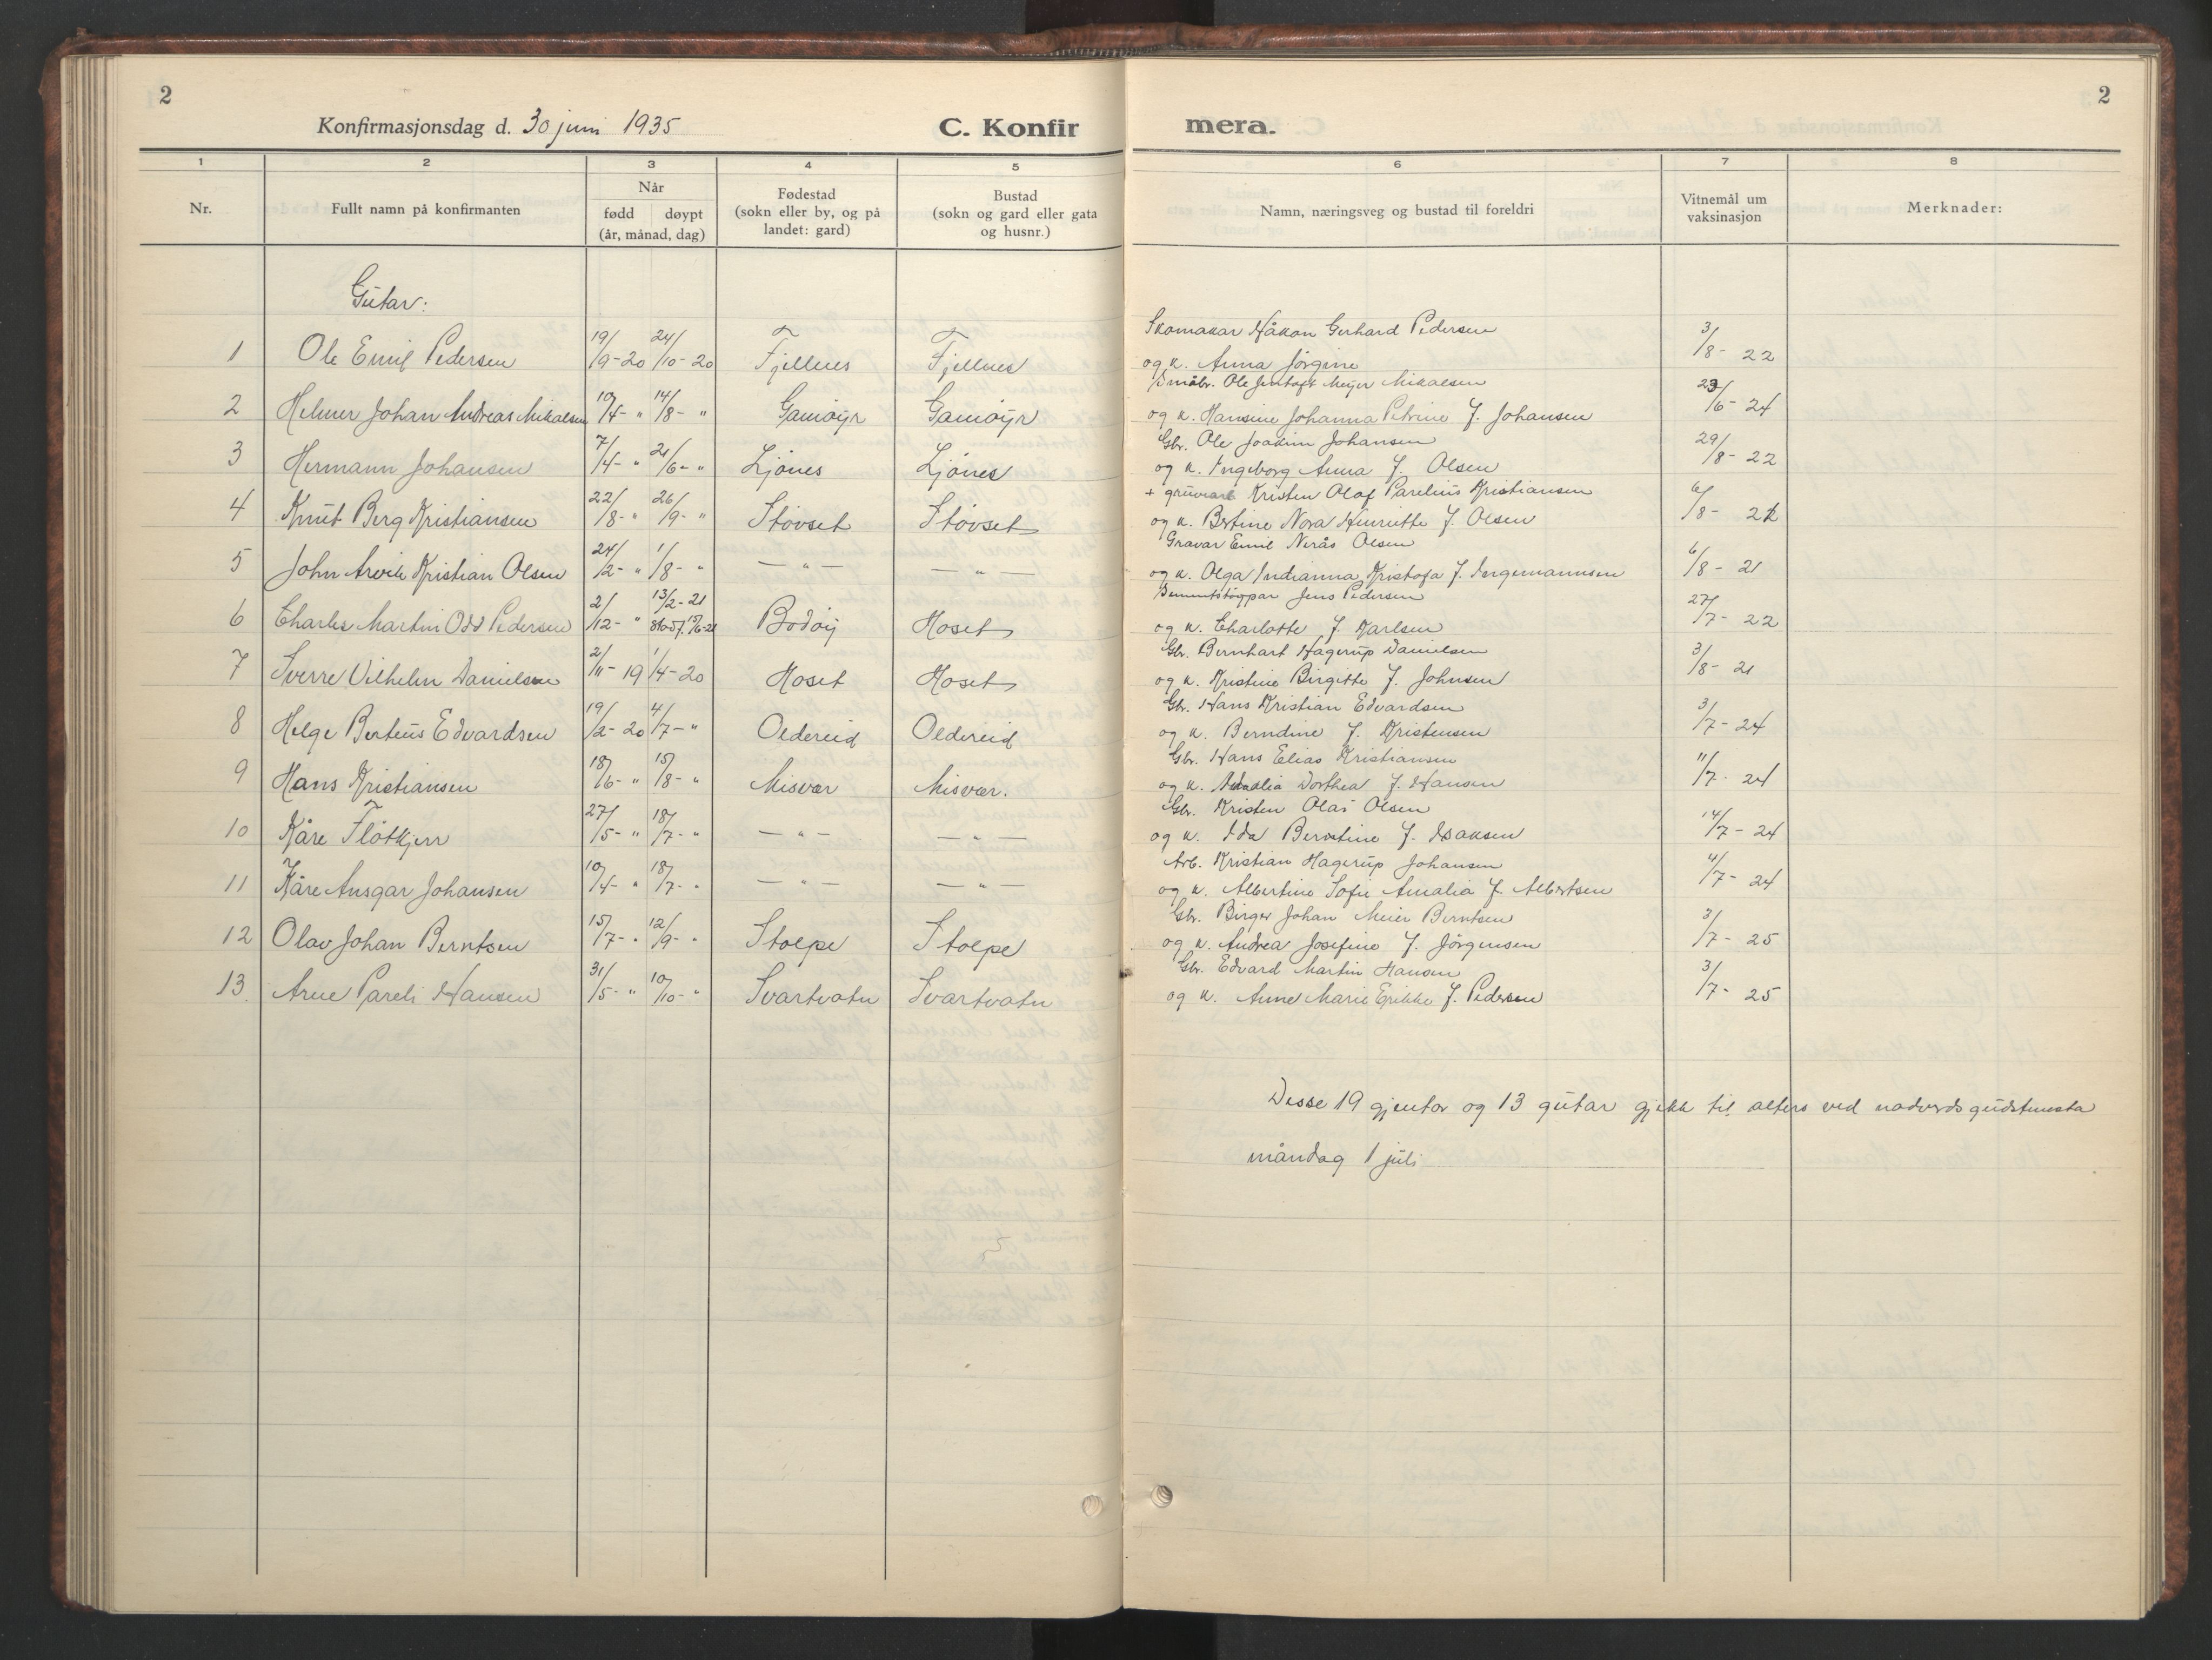 2
Konfirmasjonsdag d. 30 juni 1935
C. Konfir
1 2 3 4 5
Nr.
Fullt namn på konfirmanten
Når
fødd døypt
(år, månad, dag)
Fødestad
(sokn eller by, og på
landet: gard)
Bustad
(sokn og gard eller gata
og husnr.)
Gutar:
1 Ole Emil Pedersen 19/9-20 24/10-20 Fjellnes Fjellnes
2 Helmer Johan Andreas Mikalsen 10/4- " 14/8- " Gamøyr Gamøyr
3 Hermann Johansen 7/4- " 21/6- " Ljønes Ljønes
4 Knut Berg Kristiansen 22/8- " 26/9- " Støvset Støvset
5 John Arvik Kristian Olsen 24/2- " 1/8- " — " — — " —
6 Charles Martin Odd Pedersen 2/12- " 13/2-21 Bodøy Hoset
7 Sverre Vilhelm Danielsen 2/11-19 1/4-20 Hoset Hoset
8 Helge Berteus Edvardsen 19/2-20 4/7- " Oldereid Oldereid
9 Hans Kristiansen 18/6- " 15/8- " Misvær Misvær.
10 Kåre Fløtkjerr 27/5- " 18/7- " — " — — " —
11 Kåre Ansgar Johansen 10/4- " 18/7- " — " — — " —
12 Olav Johan Berntsen 15/7- " 12/9- " Stolpe Stolpe
13. Arne Pareli Hansen 31/5- " 10/10- " Svartvatn Svartvatn
2
mera.
6 7 8
Namn, næringsveg og bustad til foreldri
Vitnemål um
vaksinasjon
Merknader:
Skomakar Håkon Gerhard Pedersen
og k. Anna Jörgine 3/8-22
Småbr. Ole Jentoft Meyer Mikalsen
og k. Hansine Johanna Petrine f. Johansen 23/6-24
Gbr. Ole Joakim Johansen
og k. Ingeborg Anna f. Olsen 29/8-22
+ gruvearb Kristen Olaf Parelius Kristiansen
og k. Bertine Nora Henriette f. Olsen 6/8-
Gravar Emil Nerås Olsen
og k. Olga Indianna Kristofa f. Ingemannsen 6/8-21
Jens Pedersen
og k. Charlotte f. Karlsen 27/7-22
Gbr. Bernhart Hagerup Danielsen
og k. Kristine Birgitte f. Johnsen 3/8-21
Gbr. Hans Kristian Edvardsen
og k. Berndine f. Kristensen 3/7-24
Gbr. Hans Elias Kristiansen
og k. Amalia Dorthea f. Hansen 11/7-24
Gbr. Kristen Olai Olsen
og k. Ida Berntine f. Isaksen 14/7-24
Arb. Kristian Hagerup Johansen
og k. Albertine Sofie Amalia f. Albertsen 4/7-24
Gbr. Birger Johan Meier Berntsen
og k. Andrea Josefine f. Jörgensen 3/7-25
Gbr. Edvard Martin Hansen
og k. Anne Marie Erikke f. Pedersen 3/7-25
Desse 19 gjentor og 13 gutar gjekk til alters ved nadverdsgudstenesta
måndag 1 juli